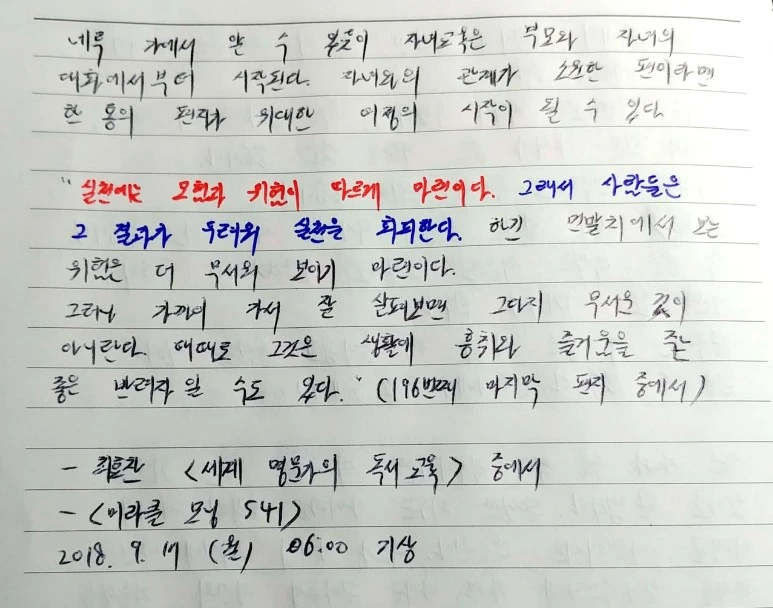 네루 가에서 알 수 있듯이 자녀교육은 부모와 자녀의
대화에서부터 시작된다. 자녀와의 관계가 소원한 편이라면
한 통의 편지가 위대한 여정의 시작이 될 수 있다
"실천에는 모험과 위험이 따르게 마련이다. 그래서 사람들은
그 결과가 두려워 실천을 회피한다. 하긴 먼발치에서 보는
위험은 더 무서워 보이기 마련이다.
그러나 가까이 가서 잘 살펴보면 그다지 무서운 것이
아니란다. 때때로 그것은 생활에 흥취와 즐거움을 주는
좋은 반려자일 수도 있다." (196번째 마지막 편지 중에서)
- 최효찬 <세계 명문가의 독서교육> 중에서
- <미라클 모닝 541>
2018. 9. 17 (월) 06:00 기상